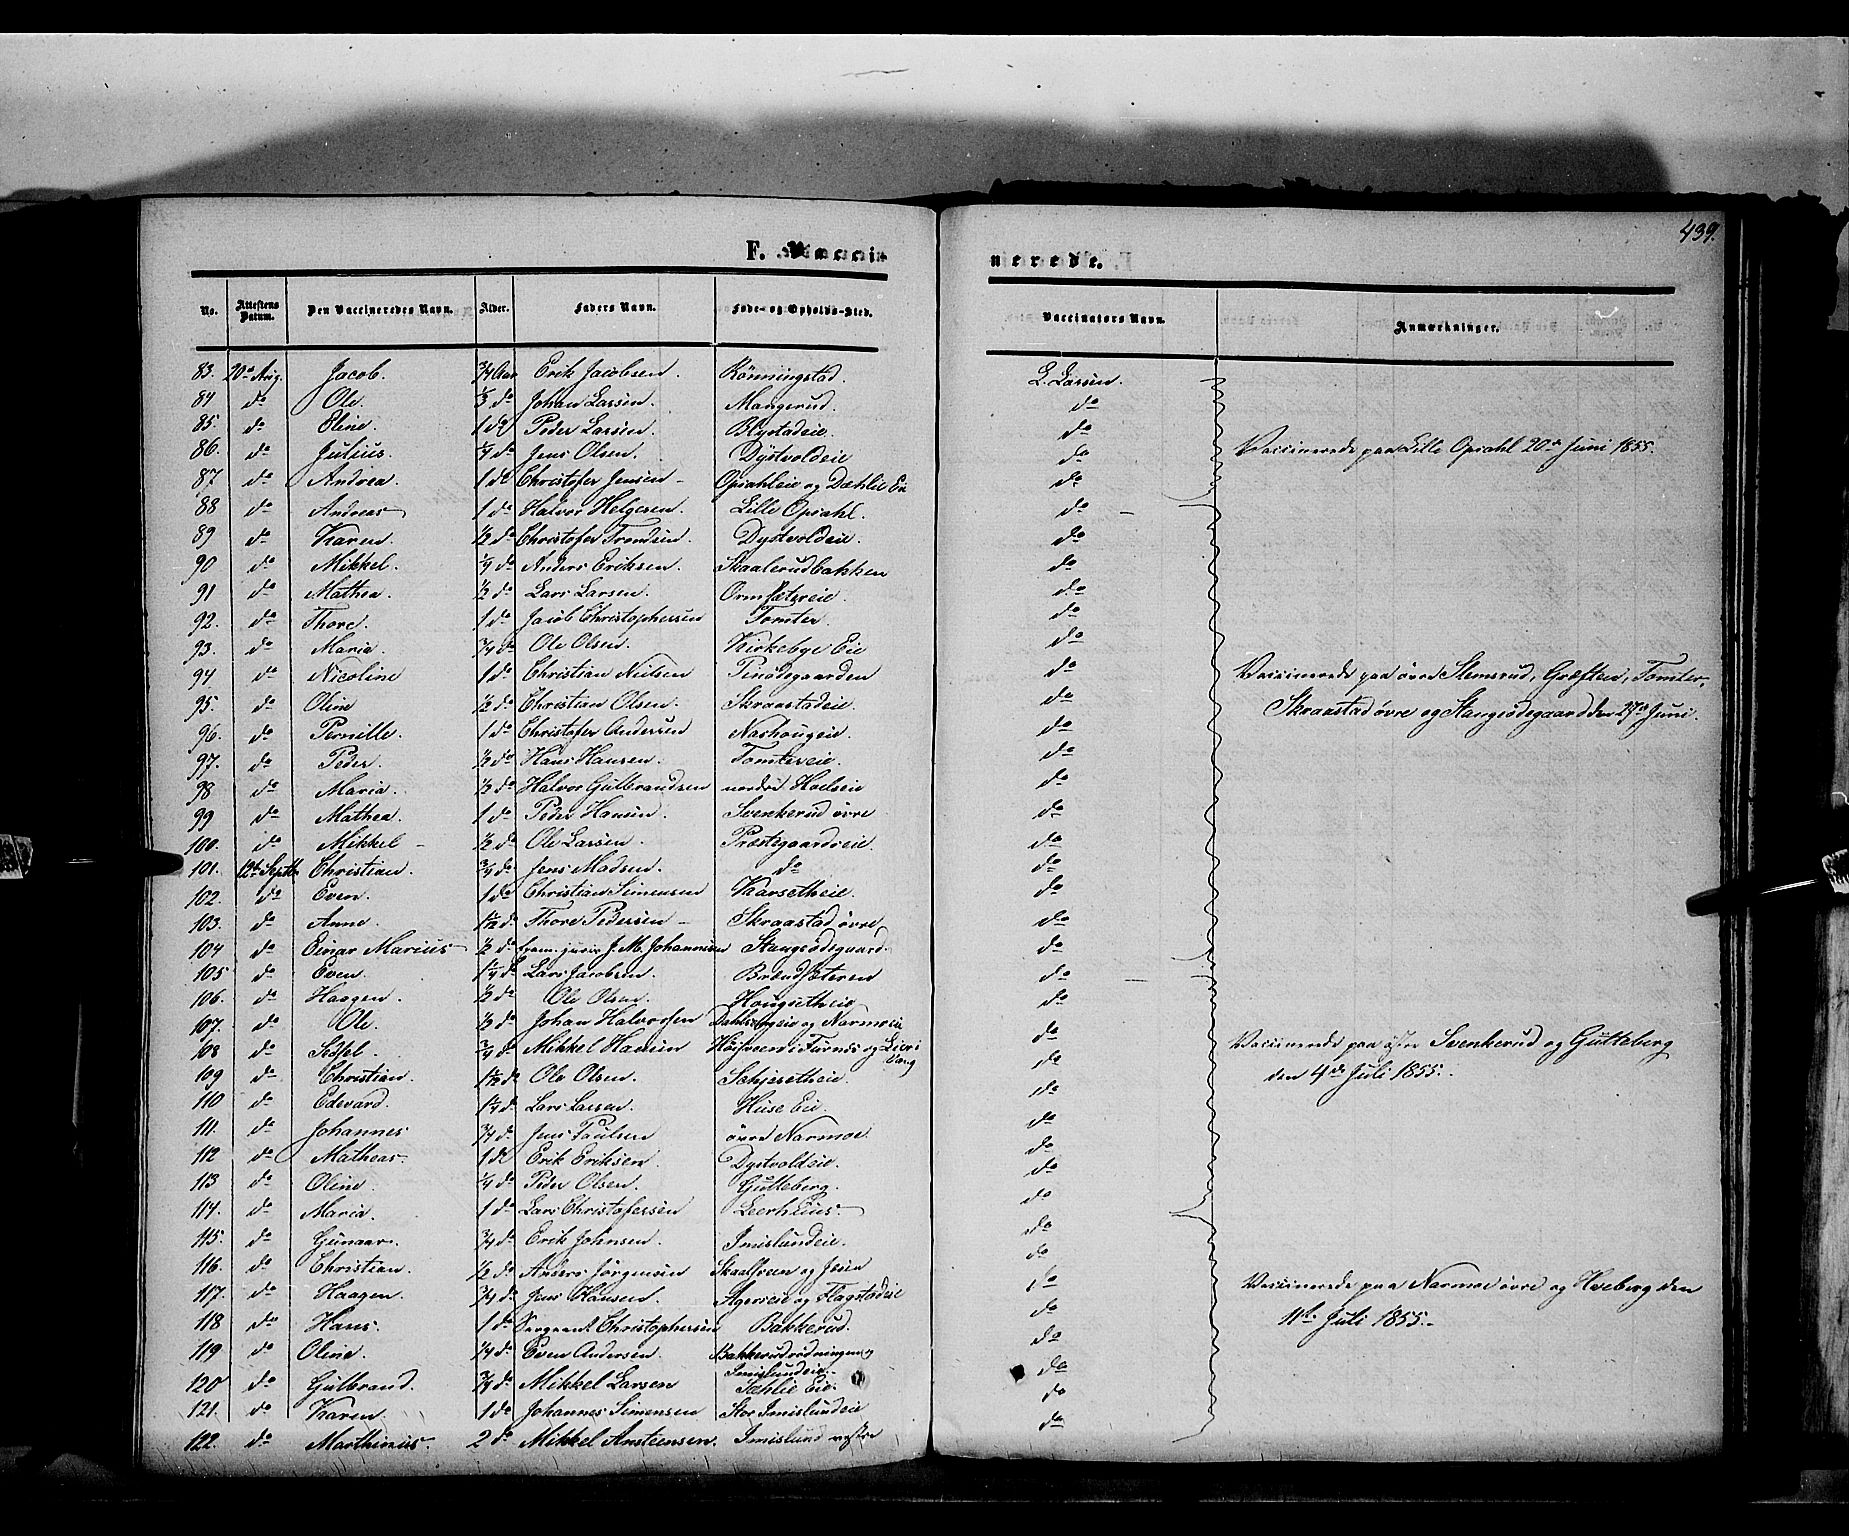 439.
F. Vacci-
nerede.
No. Attestens Datum. Den Vaccineredes Navn. Alder. Faders Navn. Føde- og Opholds-Sted. Vaccinators Navn. Anmærkninger.
83. 20de Aug. Jacob. 3/4 Aar Erik Jacobsen. Rönningstad. L. Larsen.
84 do Ole. 1/3 do Johan Larsen. Mangerud. do
85. do Eline. 1 do Peder Larsen. Blystadeie. do
86. do Julius. 1/4 do Jens Olsen. Dystvoldeie do Vaccinerede paa Lille Opsahl 20de Juni 1855.
87 do Andrea. 1 do Christofer Jensen - Opsahleie og Dæhlie Eie do
88 do Andreas 1 do Halvor Helgesen. Lille Opsahl. do
89 do Karen. 1/2 do Christofer Trondsen. Dystvoldeie. do
90 do Mikkel. 1/4 do Anders Eriksen. Skaalerudbakken do
91 do Mathea. 1/2 do Lars Larsen. Ormsætereie. do
92. do Thore. 1 do Jacob Christophersen Tomter. do
93. do Maria. 3/4 do Ole Olsen. Kirkebye Eie do
94 do Nicoline 1 do Christian Nielsen Pinödegaarden do Vaccinerede paa övre Stemsrud, Græften, Tomter,
95. do Oline 1/2 do Christian Olsen. Skraastadeie. do Skraastad övre og Stangeödegaard den 27de Juni.
96. do Pernille. 1 do Christofer Andersen Nashougeie. do
97. do Peder. 1/2 do Hans Hansen. Tomtereie. do
98 do Maria. 1/2 do Halvor Gulbrandsen nordre Hoelseie do
99 do Mathea. 1 do Peder Hansen. Svenkerud övre do
100. do Mikkel - 1/2 do Ole Larsen. Præstegaardseie. do
101. 12te Septbr Christian. 3/4 do Jens Madsen. do do
102. do Even. 1 do Christian Simensen Karsetheie. do
103. do Anne 1 1/2 do Thore Pedersen - Skraastad övre, do
104 do Einar Marius 1/2 do J. M. Johannsen Stangeödegaard. do
105 do Even. 1 1/4 do Lars Jacobsen. Brændsæteren do
106. do Haagen. 1/2 do Ole Olsen. Hougsetheie do
107. do Ole. 1/2 do Johan Halvorsen og Narmoeie do
108 do Sidsel. 3/4 do Mikkel Hansen Höisveen i Furnes og Lier i Vang do Vaccinerede paa östre Svenkerud og Gutteberg
109 do Christian. do Ole Olsen. Sæhjesetheie. do den 4de Juli 1855.
110 do Edevard. 1 1/4 do Lars Larsen. Huse Eie. do
111. do Johannes 3/4 do Jens Paulsen övre Narmoe. do
112 do Matheas. 1 do Erik Eriksen. Dystvoldeie. do
113 do Oline. 1/4 do Peder Olsen. Gutteberg. do
114. do Maria. 1 do Lars Christofersen Leerhuus. do
115. do Gunaar. 3/4 do Erik Johnsen. Imislundeie. do
116. do Christian. 1/2 do Anders Jörgensen Skaalsveen og do
117. do Haagen. 3/4 do Jens Hansen. Agerseie og Flagstadeie do Vaccinerede paa Narmoe övre og Hveberg den
118 do Hans. 1 do Sergeant Christophersen Bakkerud. do 11te Juli 1855.
119 do Oline. 1/4 do Even Andersen. Bakkerudrödningen og Imislundeie. do
120 do Gulbrand. 3/4 do Mikkel Larsen Sæhlie Eie. do
121. do Karen. 1 do Johannes Simensen Stor Imislundeie do
122. do Marthinius. 2 do Mikkel Ansteensen. Imislund vestre do